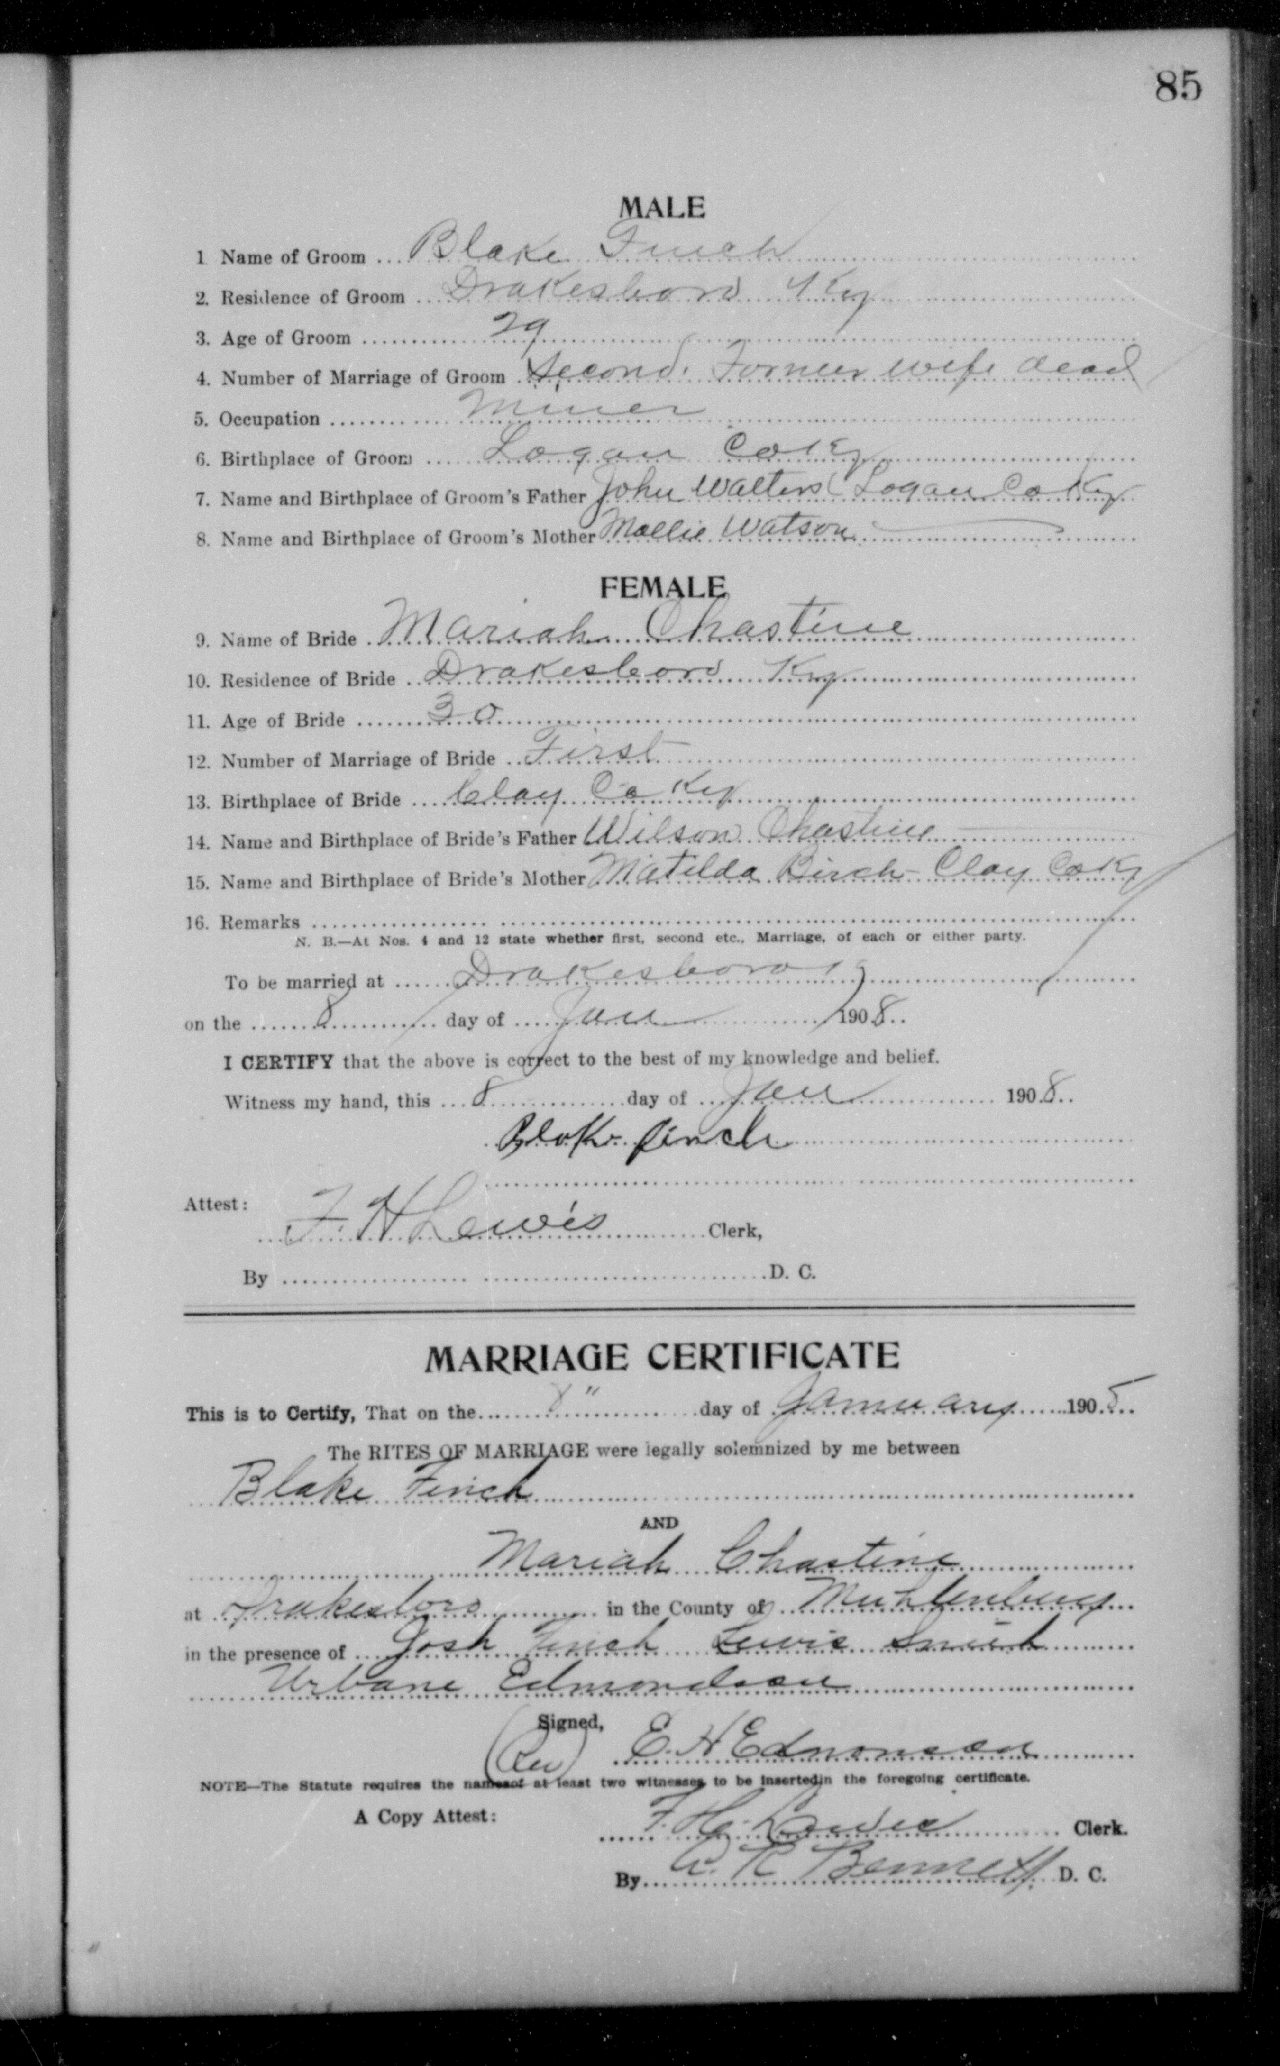 85
MALE
1 Name of Groom Blake Finch
2. Residence of Groom Drakesboro Ky
3. Age of Groom 29
4. Number of Marriage of Groom Second. Former wife dead
5. Occupation Miner
6. Birthplace of Groom Logan Co Ky
7. Name and Birthplace of Groom's Father John Walters (Logan Co Ky
8. Name and Birthplace of Groom's Mother Mollie Watson
FEMALE
9. Name of Bride Mariah Chastine
10. Residence of Bride Drakesboro Ky
11. Age of Bride 30
12. Number of Marriage of Bride First
13. Birthplace of Bride Clay Co Ky
14. Name and Birthplace of Bride's Father Wilson Chastine
15. Name and Birthplace of Bride's Mother Matilda Birch - Clay Co Ky
16. Remarks
N. B.—At Nos. 4 and 12 state whether first, second etc., Marriage, of each or either party.
To be married at Drakesboro Ky
on the 8 day of Jan 1908
I CERTIFY that the above is correct to the best of my knowledge and belief.
Witness my hand, this 8 day of Jan 1908
Blake Finch
Attest:
F. H Lewis Clerk,
By D. C.
MARRIAGE CERTIFICATE
This is to Certify, That on the 8" day of January 1905
The RITES OF MARRIAGE were legally solemnized by me between
Blake Finch
AND
Mariah Chastine
at Drakesboro in the County of Muhlenburg
in the presence of Josh Finch Lewis Smith
Urbane Edmondson
Signed,
(Rev) E. H Edmonson
NOTE—The Statute requires the namesof at least two witnesses to be insertedin the foregoing certificate.
A Copy Attest: F. H. Lewis Clerk.
By R Bennett D. C.